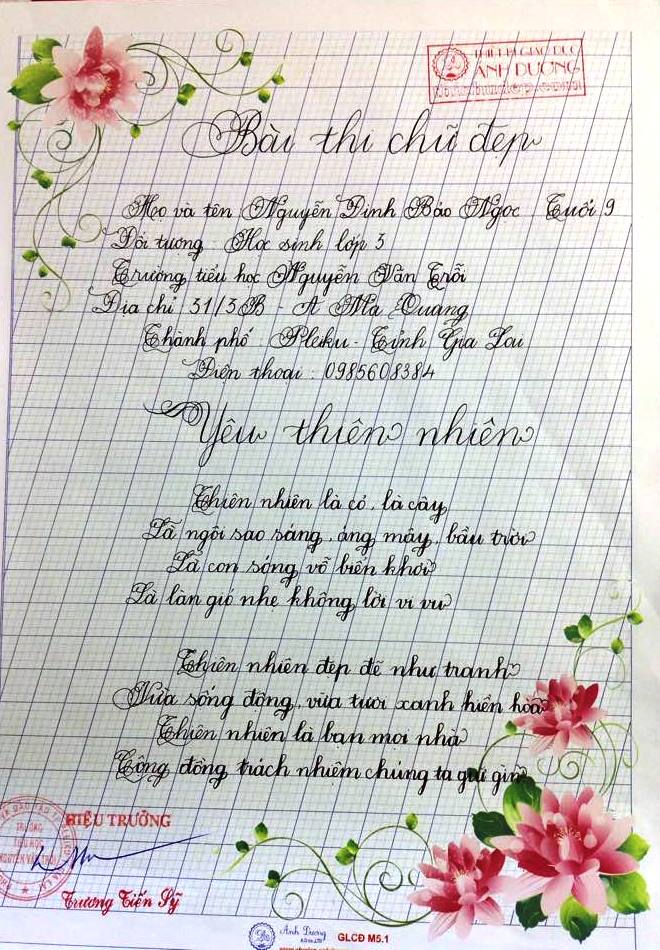 THIẾT BỊ GIÁO DỤC
ÁNH DƯƠNG
Bài thi chữ đẹp
Họ và tên Nguyễn Đình Bảo Ngọc Tuổi 9
Đối tượng : Học sinh lớp 3
Trường tiểu học Nguyễn Văn Trỗi
Địa chỉ 31/3B - A Ma Quang
Thành phố : Pleiku - Tỉnh Gia Lai
Điện thoại : 0985608384
Yêu thiên nhiên
Thiên nhiên là cỏ, là cây
Là ngôi sao sáng, áng mây, bầu trời
Là con sóng vỗ biển khơi
Là làn gió nhẹ không lời vi vu
Thiên nhiên đẹp đẽ như tranh
Vừa sống động, vừa tươi xanh hiền hòa
Thiên nhiên là bạn mọi nhà
Cộng đồng trách nhiệm chúng ta giữ gìn
HIỆU TRƯỞNG
TRƯỜNG
TIỂU HỌC
NGUYỄN VĂN TRỖI
Trương Tiến Sỹ
Ánh Dương
GLCĐ M5.1